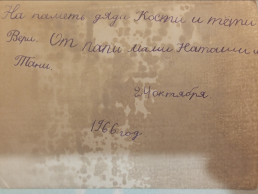 На память дяде Кости и тёти
Веры. От папы мамы Наташи и
Тани.
24 октября
1966 год.